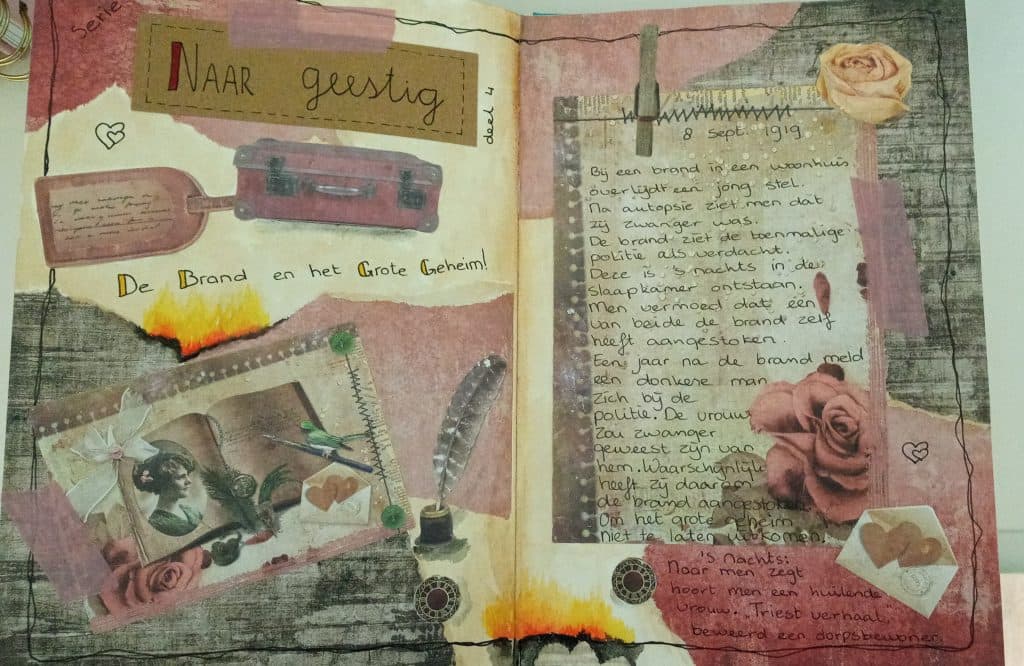 Serie
NAAR geestig
deel 4
De Brand en het Grote Geheim!
8 sept. 1919
Bij een brand in een woonhuis
overlijdt een jong stel.
Na autopsie ziet men dat
zij zwanger was.
De brand ziet de toenmalige
politie als verdacht.
Deze is 's nachts in de
slaapkamer ontstaan.
Men vermoed dat één
van beide de brand zelf
heeft aangestoken.
Een jaar na de brand meld
een donkere man
zich bij de
politie. De vrouw
zou zwanger
geweest zijn van
hem. Waarschijnlijk
heeft zij daarom
de brand aangestoken.
Om het grote geheim
niet te laten uitkomen.
's Nachts:
Naar men zegt
hoort men een huilende
vrouw. "Triest verhaal,"
beweerd een dorpsbewoner.